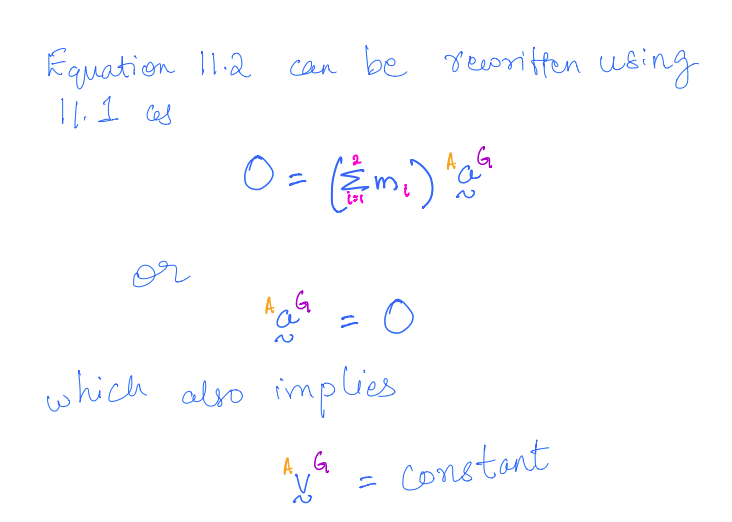 Equation 11.2 can be rewritten using
11.1 as
0 = (∑_{i=1}^{2} m_i) ᴬa̰ᴳ
or
ᴬa̰ᴳ = 0
which also implies
ᴬv̰ᴳ = constant